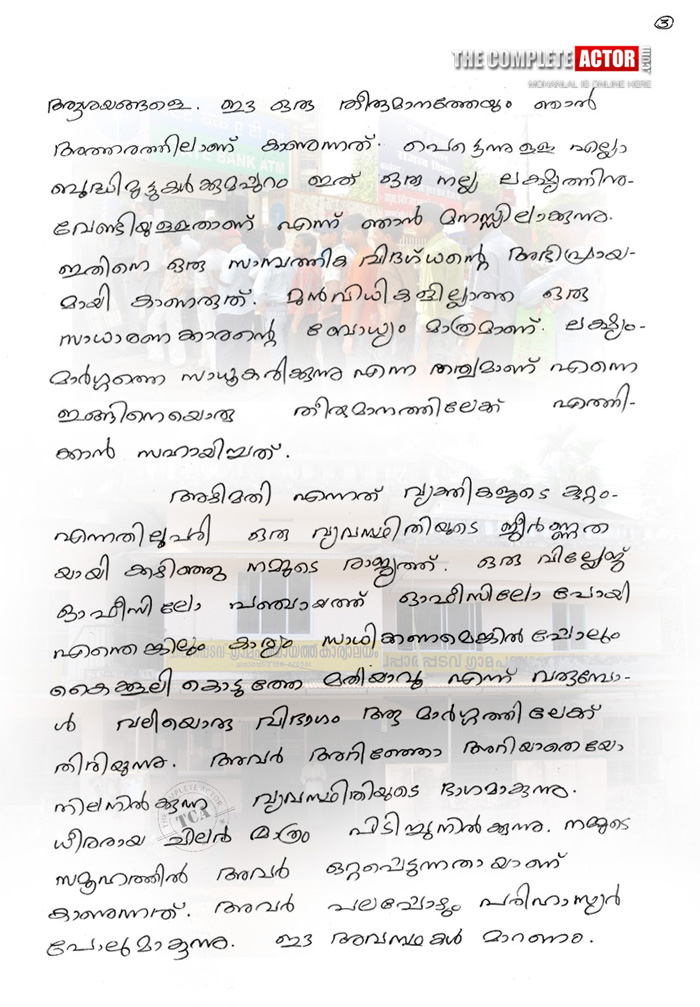 3
THE COMPLETE ACTOR.com
MOHANLAL IS ONLINE HERE
ആശയങ്ങളെ. ഈ ഒരു തീരുമാനത്തേയും ഞാൻ
അത്തരത്തിലാണ് കാണുന്നത്. പെട്ടെന്നുള്ള എല്ലാ
ബുദ്ധിമുട്ടുകൾക്കുമപ്പുറം ഇത് ഒരു നല്ല ലക്ഷ്യത്തിനു-
വേണ്ടിയുള്ളതാണ് എന്ന് ഞാൻ മനസ്സിലാക്കുന്നു.
ഇതിനെ ഒരു സാമ്പത്തിക വിദഗ്ധന്റെ അഭിപ്രായ-
മായി കാണരുത്. മുൻവിധികളില്ലാത്ത ഒരു
സാധാരണക്കാരന്റെ ബോധ്യം മാത്രമാണ്. ലക്ഷ്യം-
മാർഗ്ഗത്തെ സാധൂകരിക്കുന്നു എന്ന തത്ത്വമാണ് എന്നെ
ഇങ്ങിനെയൊരു തീരുമാനത്തിലേക് എത്തി-
ക്കാൻ സഹായിച്ചത്.
അഴിമതി എന്നത് വ്യക്തികളുടെ കുറ്റം-
എന്നതിലുപരി ഒരു വ്യവസ്ഥിതിയുടെ ജീർണ്ണത
യായി കഴിഞ്ഞു നമ്മുടെ രാജ്യത്ത്. ഒരു വില്ലേജ്
ഓഫീസിലോ പഞ്ചായത്ത് ഓഫീസിലോ പോയി
എന്തെങ്കിലും കാര്യം സാധിക്കണമെങ്കിൽപ്പോലും
കൈക്കൂലി കൊടുത്തേ മതിയാവൂ എന്ന് വരുമ്പോ-
ൾ വലിയൊരു വിഭാഗം ആ മാർഗ്ഗത്തിലേക്ക്
തിരിയുന്നു. അവർ അറിഞ്ഞോ അറിയാതെയോ
നിലനിൽക്കുന്ന വ്യവസ്ഥിതിയുടെ ഭാഗമാകുന്നു.
ധീരരായ ചിലർ മാത്രം പിടിച്ചുനിൽക്കുന്നു. നമ്മുടെ
സമൂഹത്തിൽ അവർ ഒറ്റപ്പെടുന്നതായാണ്
കാണുന്നത്. അവർ പലപ്പോഴും പരിഹാസ്യർ
പോലുമാകുന്നു. ഈ അവസ്ഥകൾ മാറണം.
THE COMPLETE ACTOR
TCA